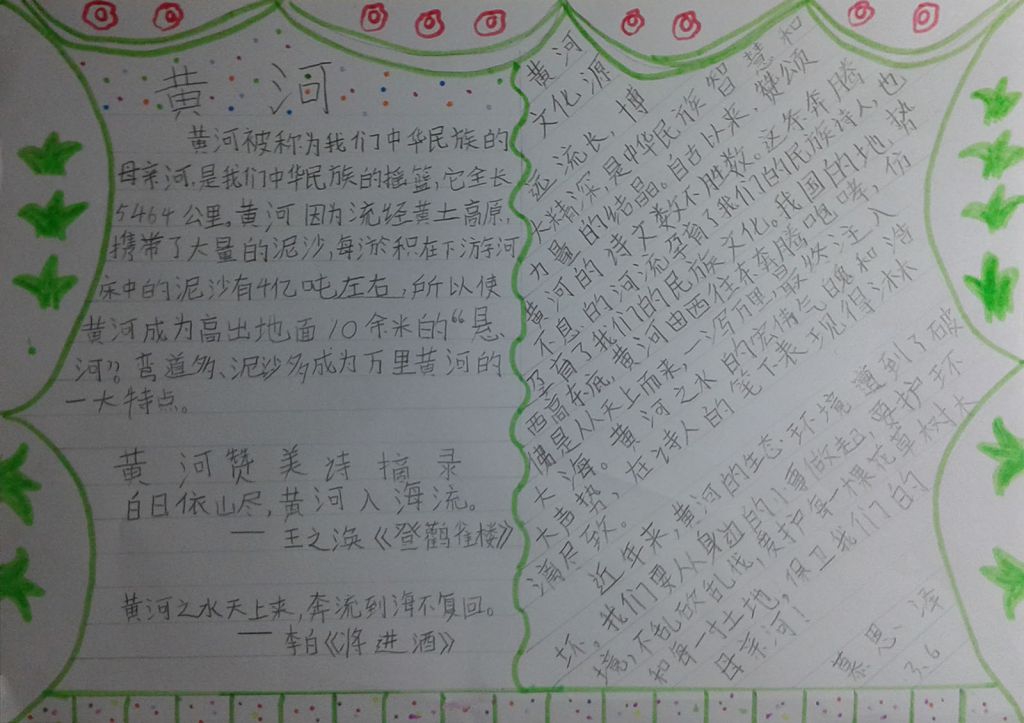 黄河
黄河被称为我们中华民族的
母亲河,是我们中华民族的摇篮,它全长
5464公里。黄河因为流经黄土高原,
携带了大量的泥沙,每淤积在下游河
床中的泥沙有4亿吨左右,所以使
黄河成为高出地面10余米的“悬
河”。弯道多、泥沙多成为万里黄河的
一大特点。
黄河赞美诗摘录
白日依山尽,黄河入海流。
——王之涣《登鹳雀楼》
黄河之水天上来,奔流到海不复回。
——李白《将进酒》
黄河
文化源
远流长,博
大精深,是中华民族智慧和
力量的结晶。自古以来,赞颂
黄河的诗文数不胜数。这条奔腾
不息的河流孕育了我们的民族诗人,也
孕育了我们的民族文化。我国的地势
西高东底,黄河由西往东奔腾咆哮,仿
佛是从天上而来,一泻万里,最然注入
大海。黄河之水的宏倩气魄和浩
大声势,在诗人的笔下表现得淋
漓尽致。
近年来,黄河的生态环境遭到了破
坏。我们要从身边的小事做起,要护环
境,不乱砍乱伐,爱护每一棵花草树木
和每一寸土地,保卫我们的
母亲河!
慕思泽
3.6